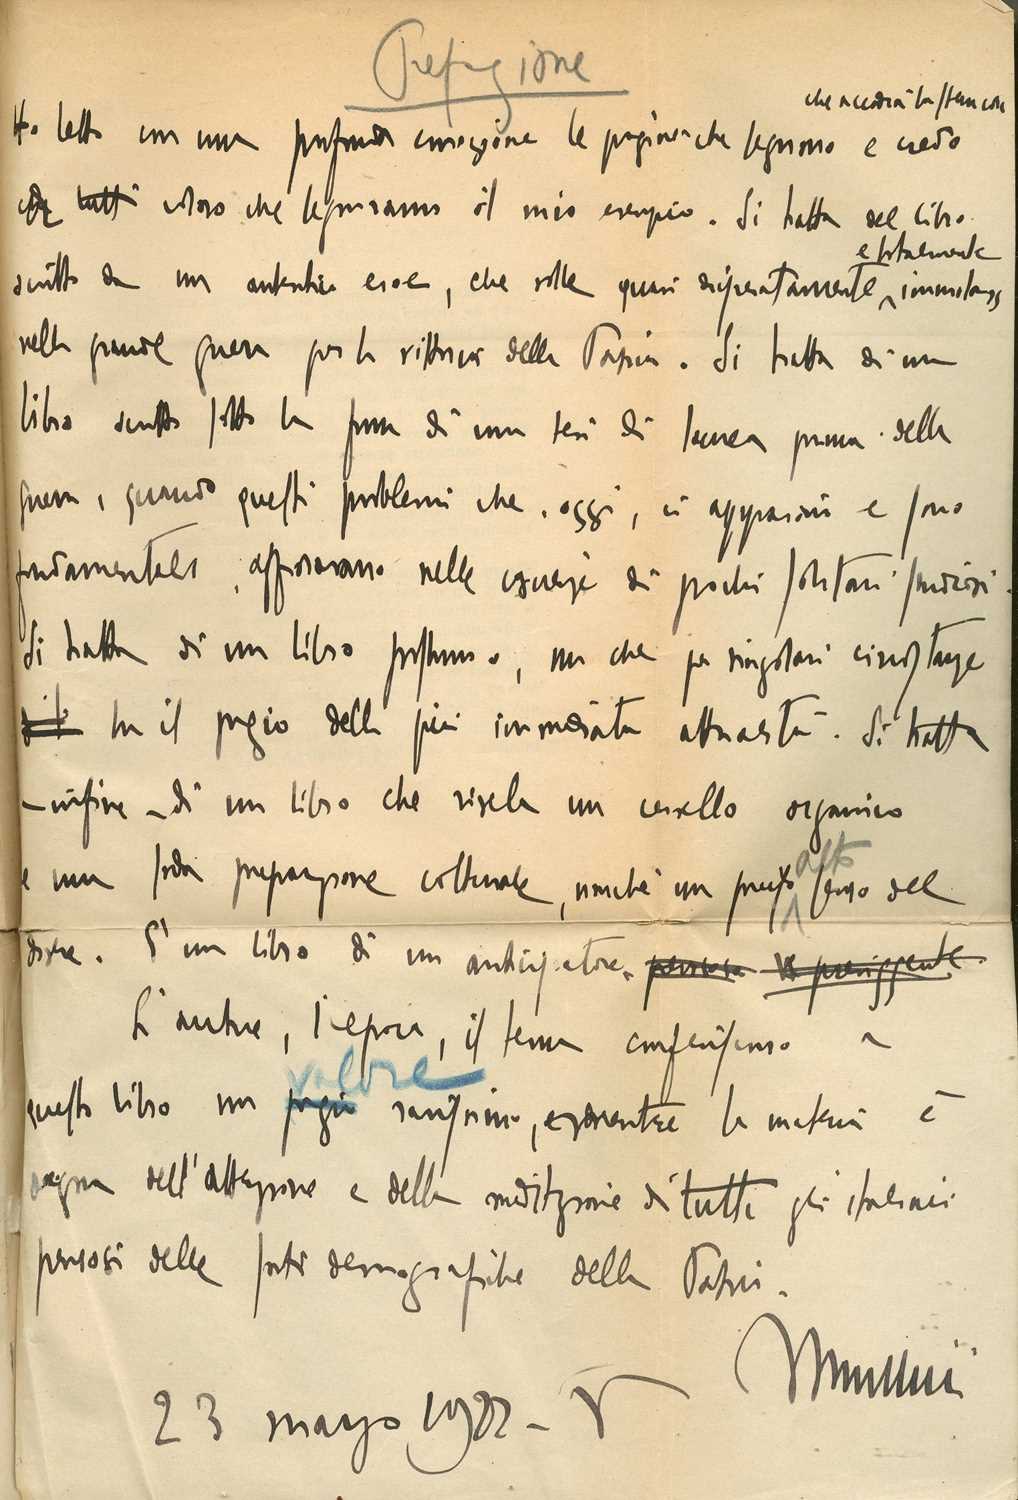 Prefazione
che accadrà la stessa cosa
Ho letto con una profonda emozione le pagine che seguono e credo
che tutti coloro che seguiranno il mio esempio. Si tratta del libro
e totalmente
scritto da un autentico eroe, che volle quasi disperatamente immolarsi
nella grande guerra per la vittoria della Patria. Si tratta di un
libro scritto sotto la forma di una tesi di laurea prima della
guerra, quando questi problemi che, oggi, ci appassionano e sono
fondamentali, affioravano nelle esigenze di pochi solitari studiosi.
Si tratta di un libro postumo, ma che per singolari circostanze
ha il pregio della più immediata attualità. Si tratta
- infine - di un libro che rivela un cervello organico
alto
e una soda preparazione culturale, nonché un preciso senso del
dovere. È un libro di un anticipatore. pensoso preveggente.
L'autore, l'epoca, il tema conferiscono a
valore
questo libro un pregio rarissimo, mentre la materia è
degna dell'attenzione e della meditazione di tutti gli italiani
pensosi delle sorti demografiche della Patria.
Mussolini
23 marzo 1927 - V